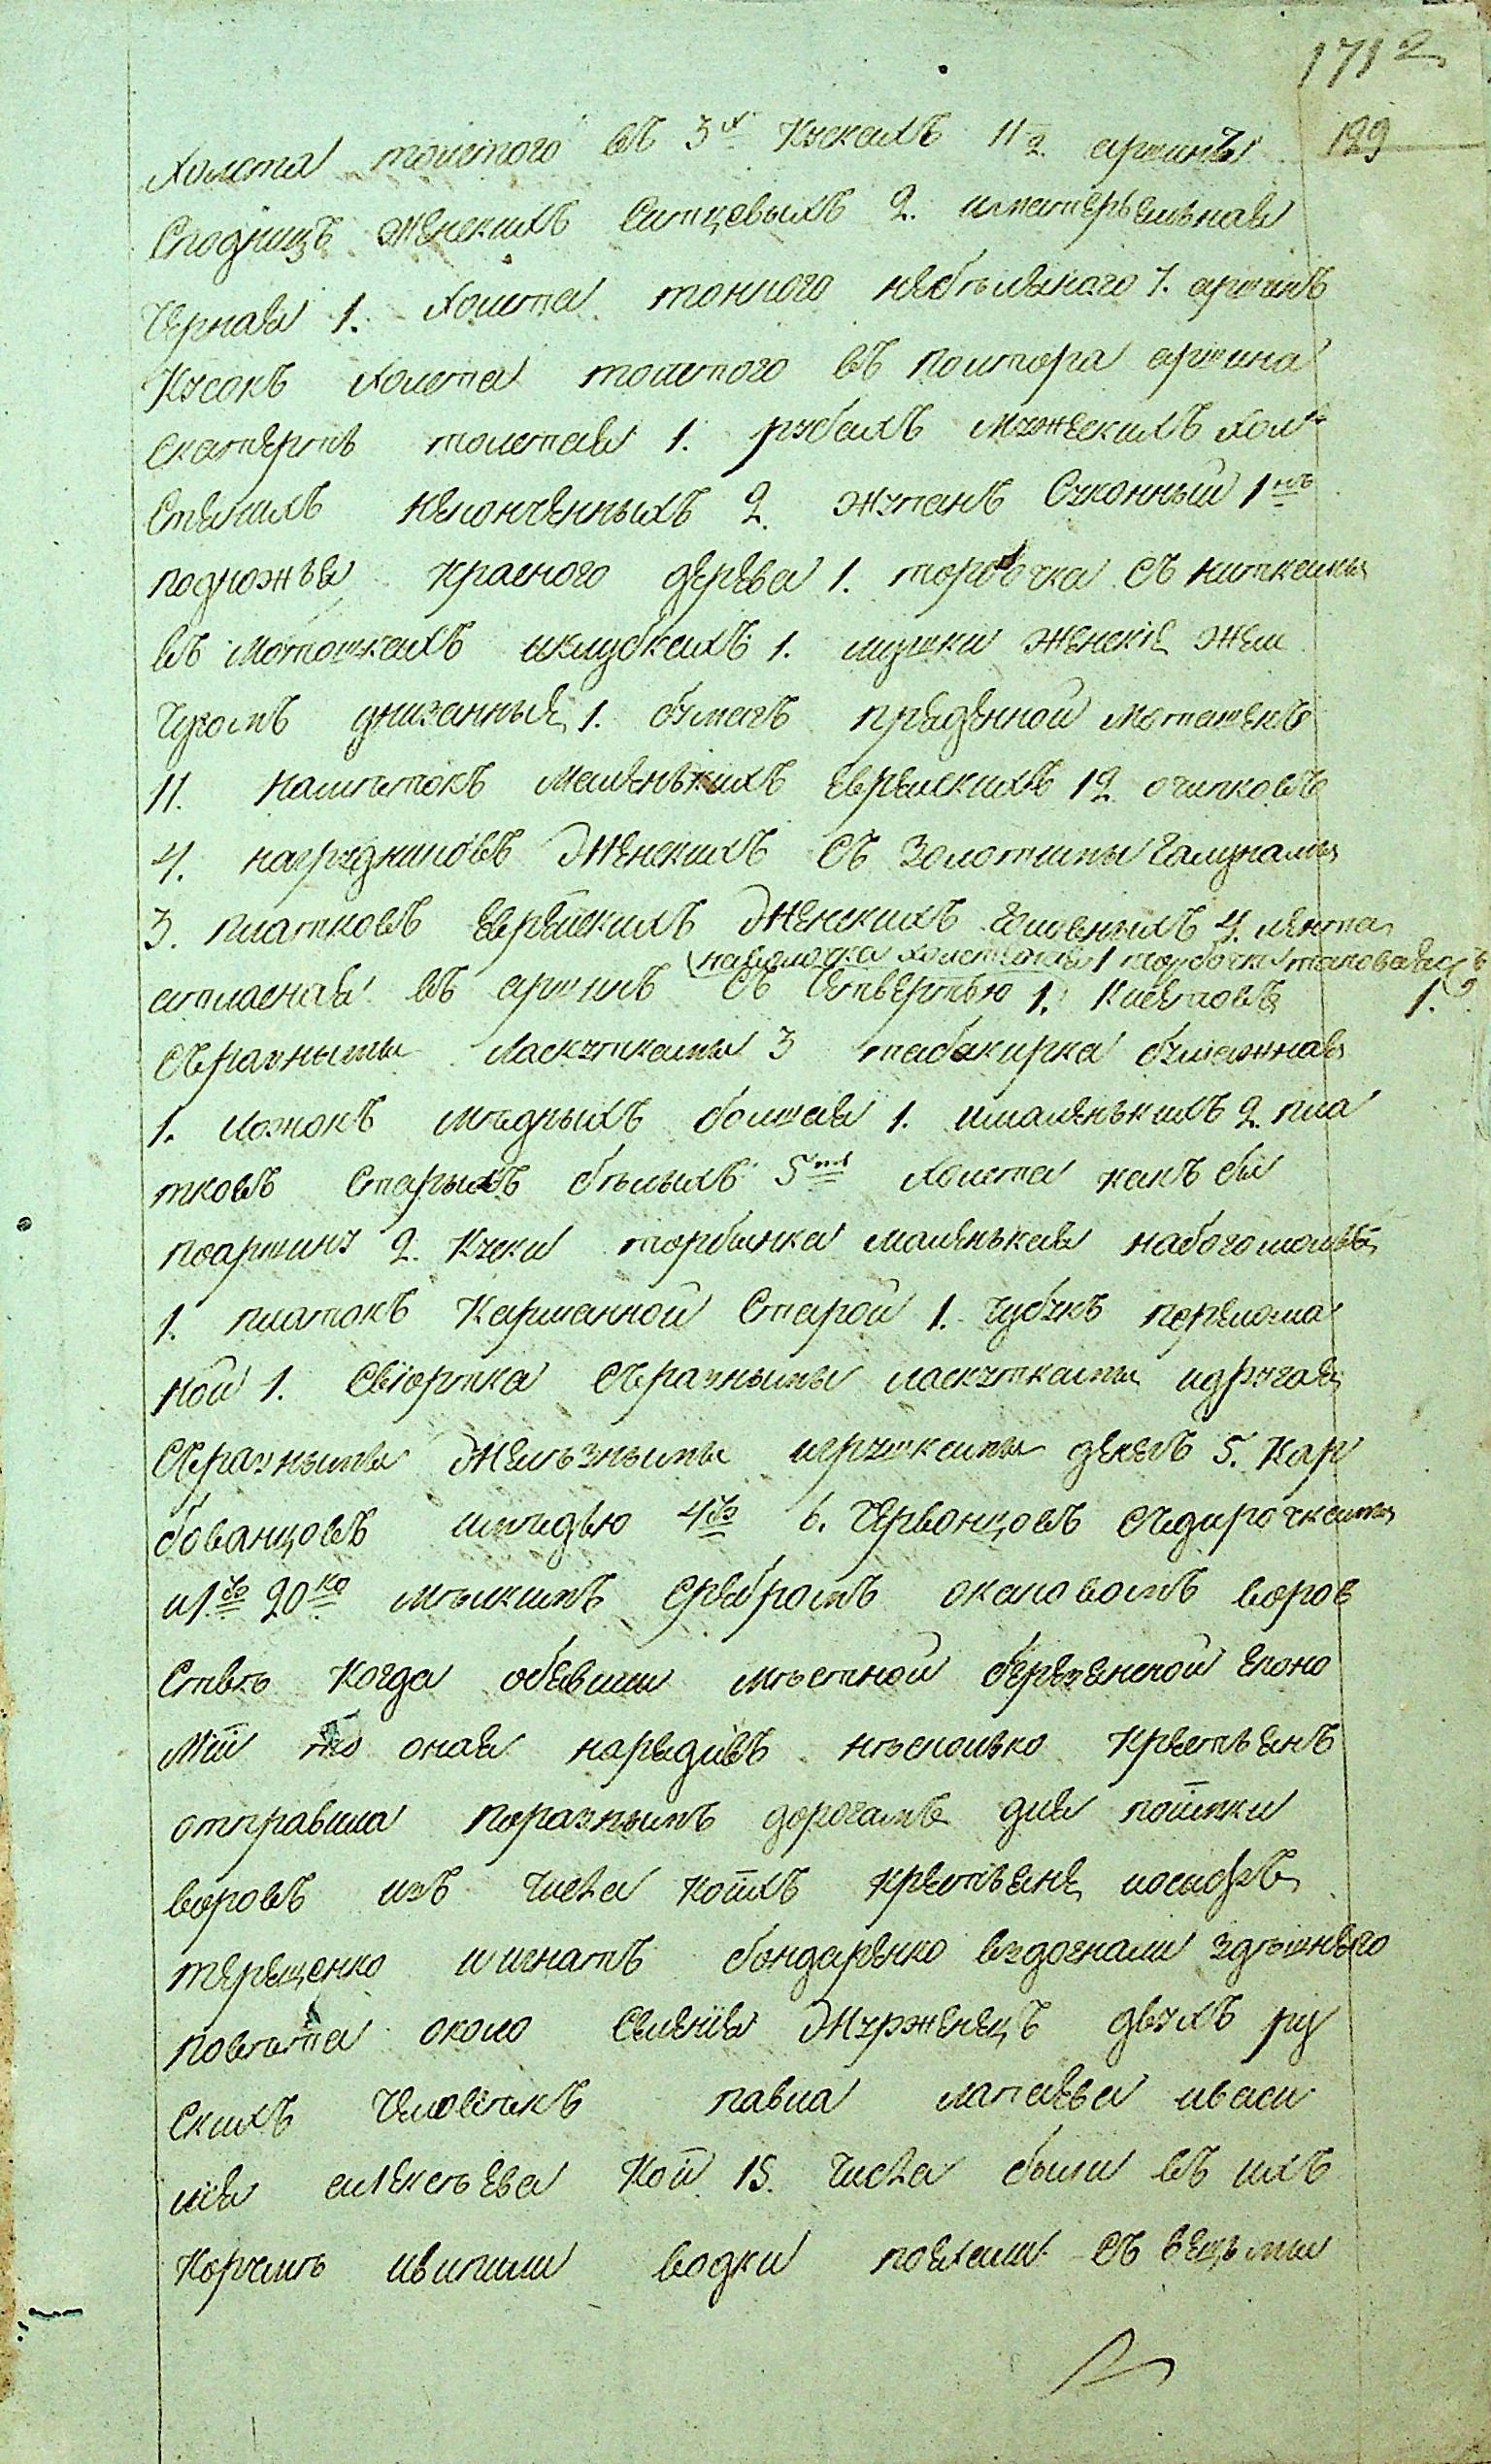 1712
129
Холста толстого въ 3х кускахъ 11½ аршинъ
Сподницъ женскихъ ситцовыхъ 2. иматерѣялная
черная 1. Холста тонкого небѣленого 7. аршинъ
Кусокъ холста толстого въ полтора аршина
скатертъ толстая 1. рубахъ мужескихъ хол
стяныхъ неконченныхъ 2. жупанъ Суконный 1нъ
подножья красного дерева 1. торбочка съ нитками
въ Мотошкахъ иклубкахъ 1. мушки женскіе жем
чугомъ унизанныя 1. бумагъ пряденной моташекъ
11. намѣтокъ маленькихъ еврейскихъ 12 очипковъ
4. нагрудниковъ женскихъ съ золотими галунами
3. платковъ еврейскихъ женскихъ головныхъ 4. лента
наволочка холстяная 1 торбочки таковаяжъ
1.
атласная въ аршинъ съ четвертью 1. Кисетовъ
сѣразными Ласкутками 3 табакирка бумажная
1. ложокъ мѣдныхъ болшая 1. ималенькихъ 2. пла
тковъ старыхъ бѣлыхъ 5ть Холста какъ бы
поаршину 2. Куски торбинка маленькая набогомолье
1. платокъ Карманной Старой 1. чубукъ перелома
ной 1. Свіортка сѣразными ласкутками идругая
сѣразными желѣзными игрушками денегъ 5. Кар
бованцовъ имѣдью 4ру 6. Червонцовъ сѣдирочками
и1ру 20ко мѣлкимъ серебромъ окаковомъ воров
ствѣ когда обявили мѣстной березенской еконо
міи то оная нарядивъ нѣсколько крестьянъ
отправила поразнымъ дорогамъ для поимки
воровъ изъ числа коихъ крестьяне иосифъ
терещенко иигнатъ бондаренко вздогнали здѣшнего
повѣта около Селенія Журженецъ двухъ ру
скихъ человѣкъ павла лапаева иваси
лія алексѣева кои 15. числа были въ ихъ
корчмѣ ивипили водки поехали съ вещьми